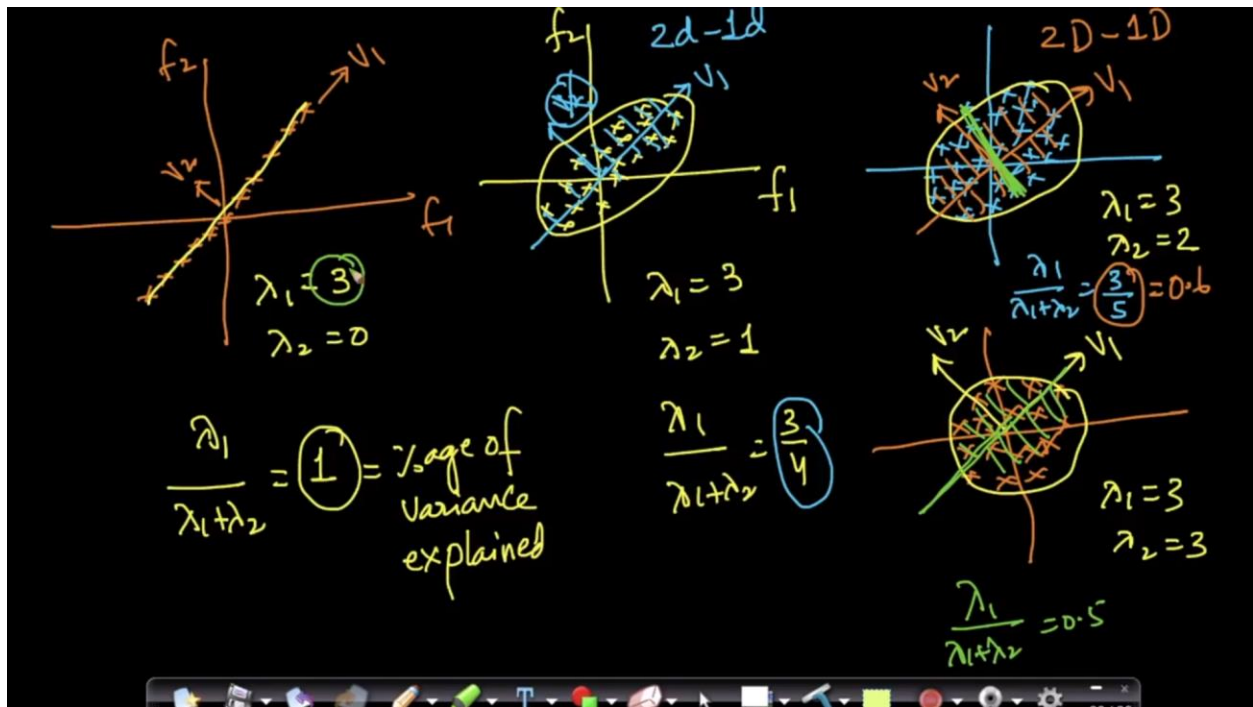 f2
V1
V2
f1
λ1 = 3
λ2 = 0
λ1
λ1+λ2
= 1 = %age of
variance
explained
f2
2d-1d
V1
f1
λ1 = 3
λ2 = 1
λ1
λ1+λ2
= 3
4
2D-1D
V2
V1
λ1 = 3
λ2 = 2
λ1
λ1+λ2
= 3
5
= 0.6
V2
V1
λ1 = 3
λ2 = 3
λ1
λ1+λ2
= 0.5
T